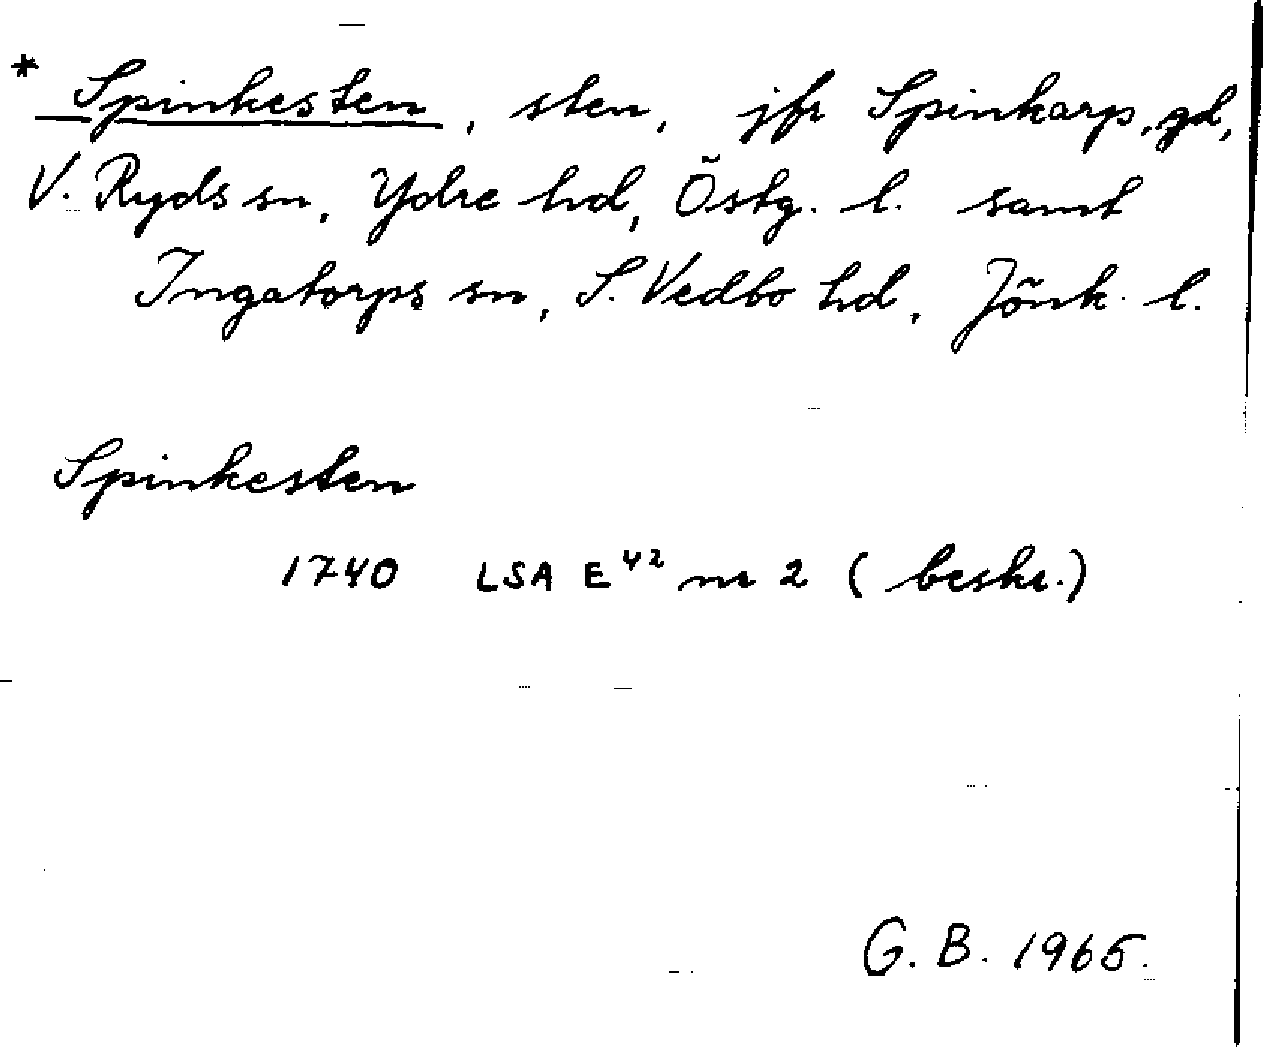 * Spinkesten, sten, jfr Spinkarp, gd,
V. Ryds sn, Ydre hd, Östg. l. samt
Ingatorps sn, S. Vedbo hd, Jönk. l.
Spinkesten
1740 LSA E⁴² nr 2 (beskr.)
G. B. 1965.